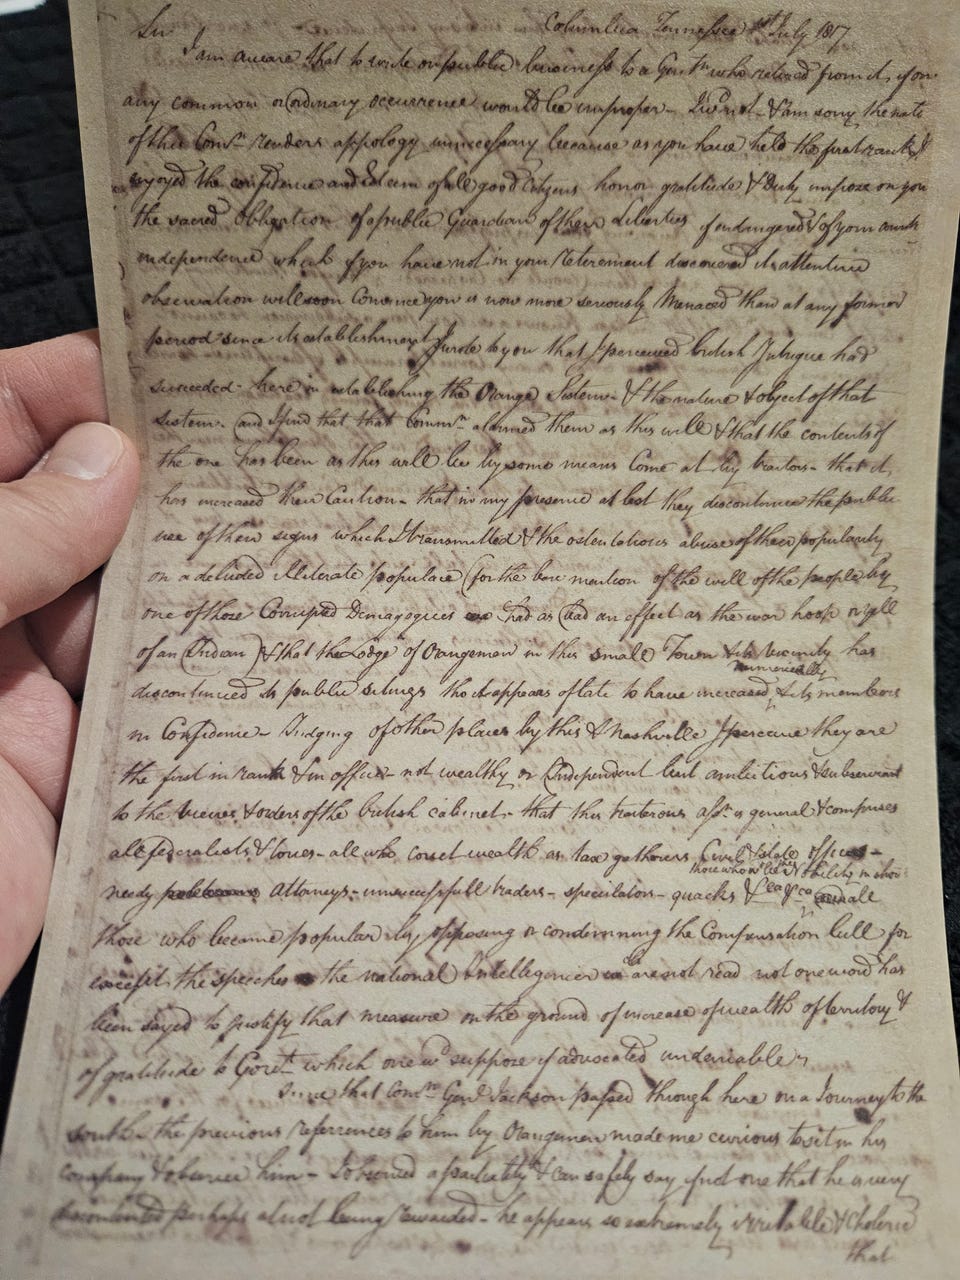 Sir Columbia Tennessee 1st July 1817
I am aware that to write on public business to a Gentn who retired from it, upon
any common or ordinary occurrence would be improper - I do not - & am sorry the nature
of this Comn renders appology unnecessary because as you have held the first rank &
enjoyed the confidence and Esteem of all good Citizens honor gratitude & Duty impose on you
the sacred obligation of a public Guardian of their Liberties if endangered & of your
independence which if you have not in your retirement discovered it attentive
observation will soon Convince you is now more seriously Menaced than at any former
period since its establishment I wrote to you that I perceived british Intrigue had
succeeded - here in establishing the Orange Sistem - & the nature & object of that
sistem - and I find that that Commn alarmed them as this will & that the contents of
the one has been as this will be by some means Come at by traitors - that it
has increased their Caution - that in my presence at lest they discontinue the public
use of their signs which I transmitted & the ostentatious abuse of their popularity
on a deluded illiterate populace (for the bare mention of the will of the people by
one of those Corrupted Demagogues had as bad an effect as the war hoop or yell
of an Indian) & that the Lodge of Orangemen in this small Town & its Vicinity has
numerically
discontinued its public sitings tho it appears of late to have increased & its members
in Confidence - Judging of other places by this & Nashville I perceive they are
the first in rank & in office - not wealthy or Independent but ambitious & subservient
to the views & orders of the british cabinet - that this traiterous assn is general & comprises
all federalists & tories - all who covet wealth as tax gatherers Civil & state offices -
those who wd be the Nobility in
needy Attorneys - unsuccessfull traders - speculators - quacks & all
those who became popular by opposing or condemning the Compensation bill for
except the speeches the national Intelligencer are not read not one word has
been sayed to justify that measure on the ground of increase of wealth of territory &
of gratitude to Govt which one wd suppose if advocated undeniable
Since that Comn Genl Jackson passed through here on a Journey to the
south - the previous references to him by Orangemen made me curious to sit in his
company & observe him - I observed a partiality & can safely say not one that he is very
discontented perhaps at not being rewarded - he appears so extremely irritable & Choleric
that